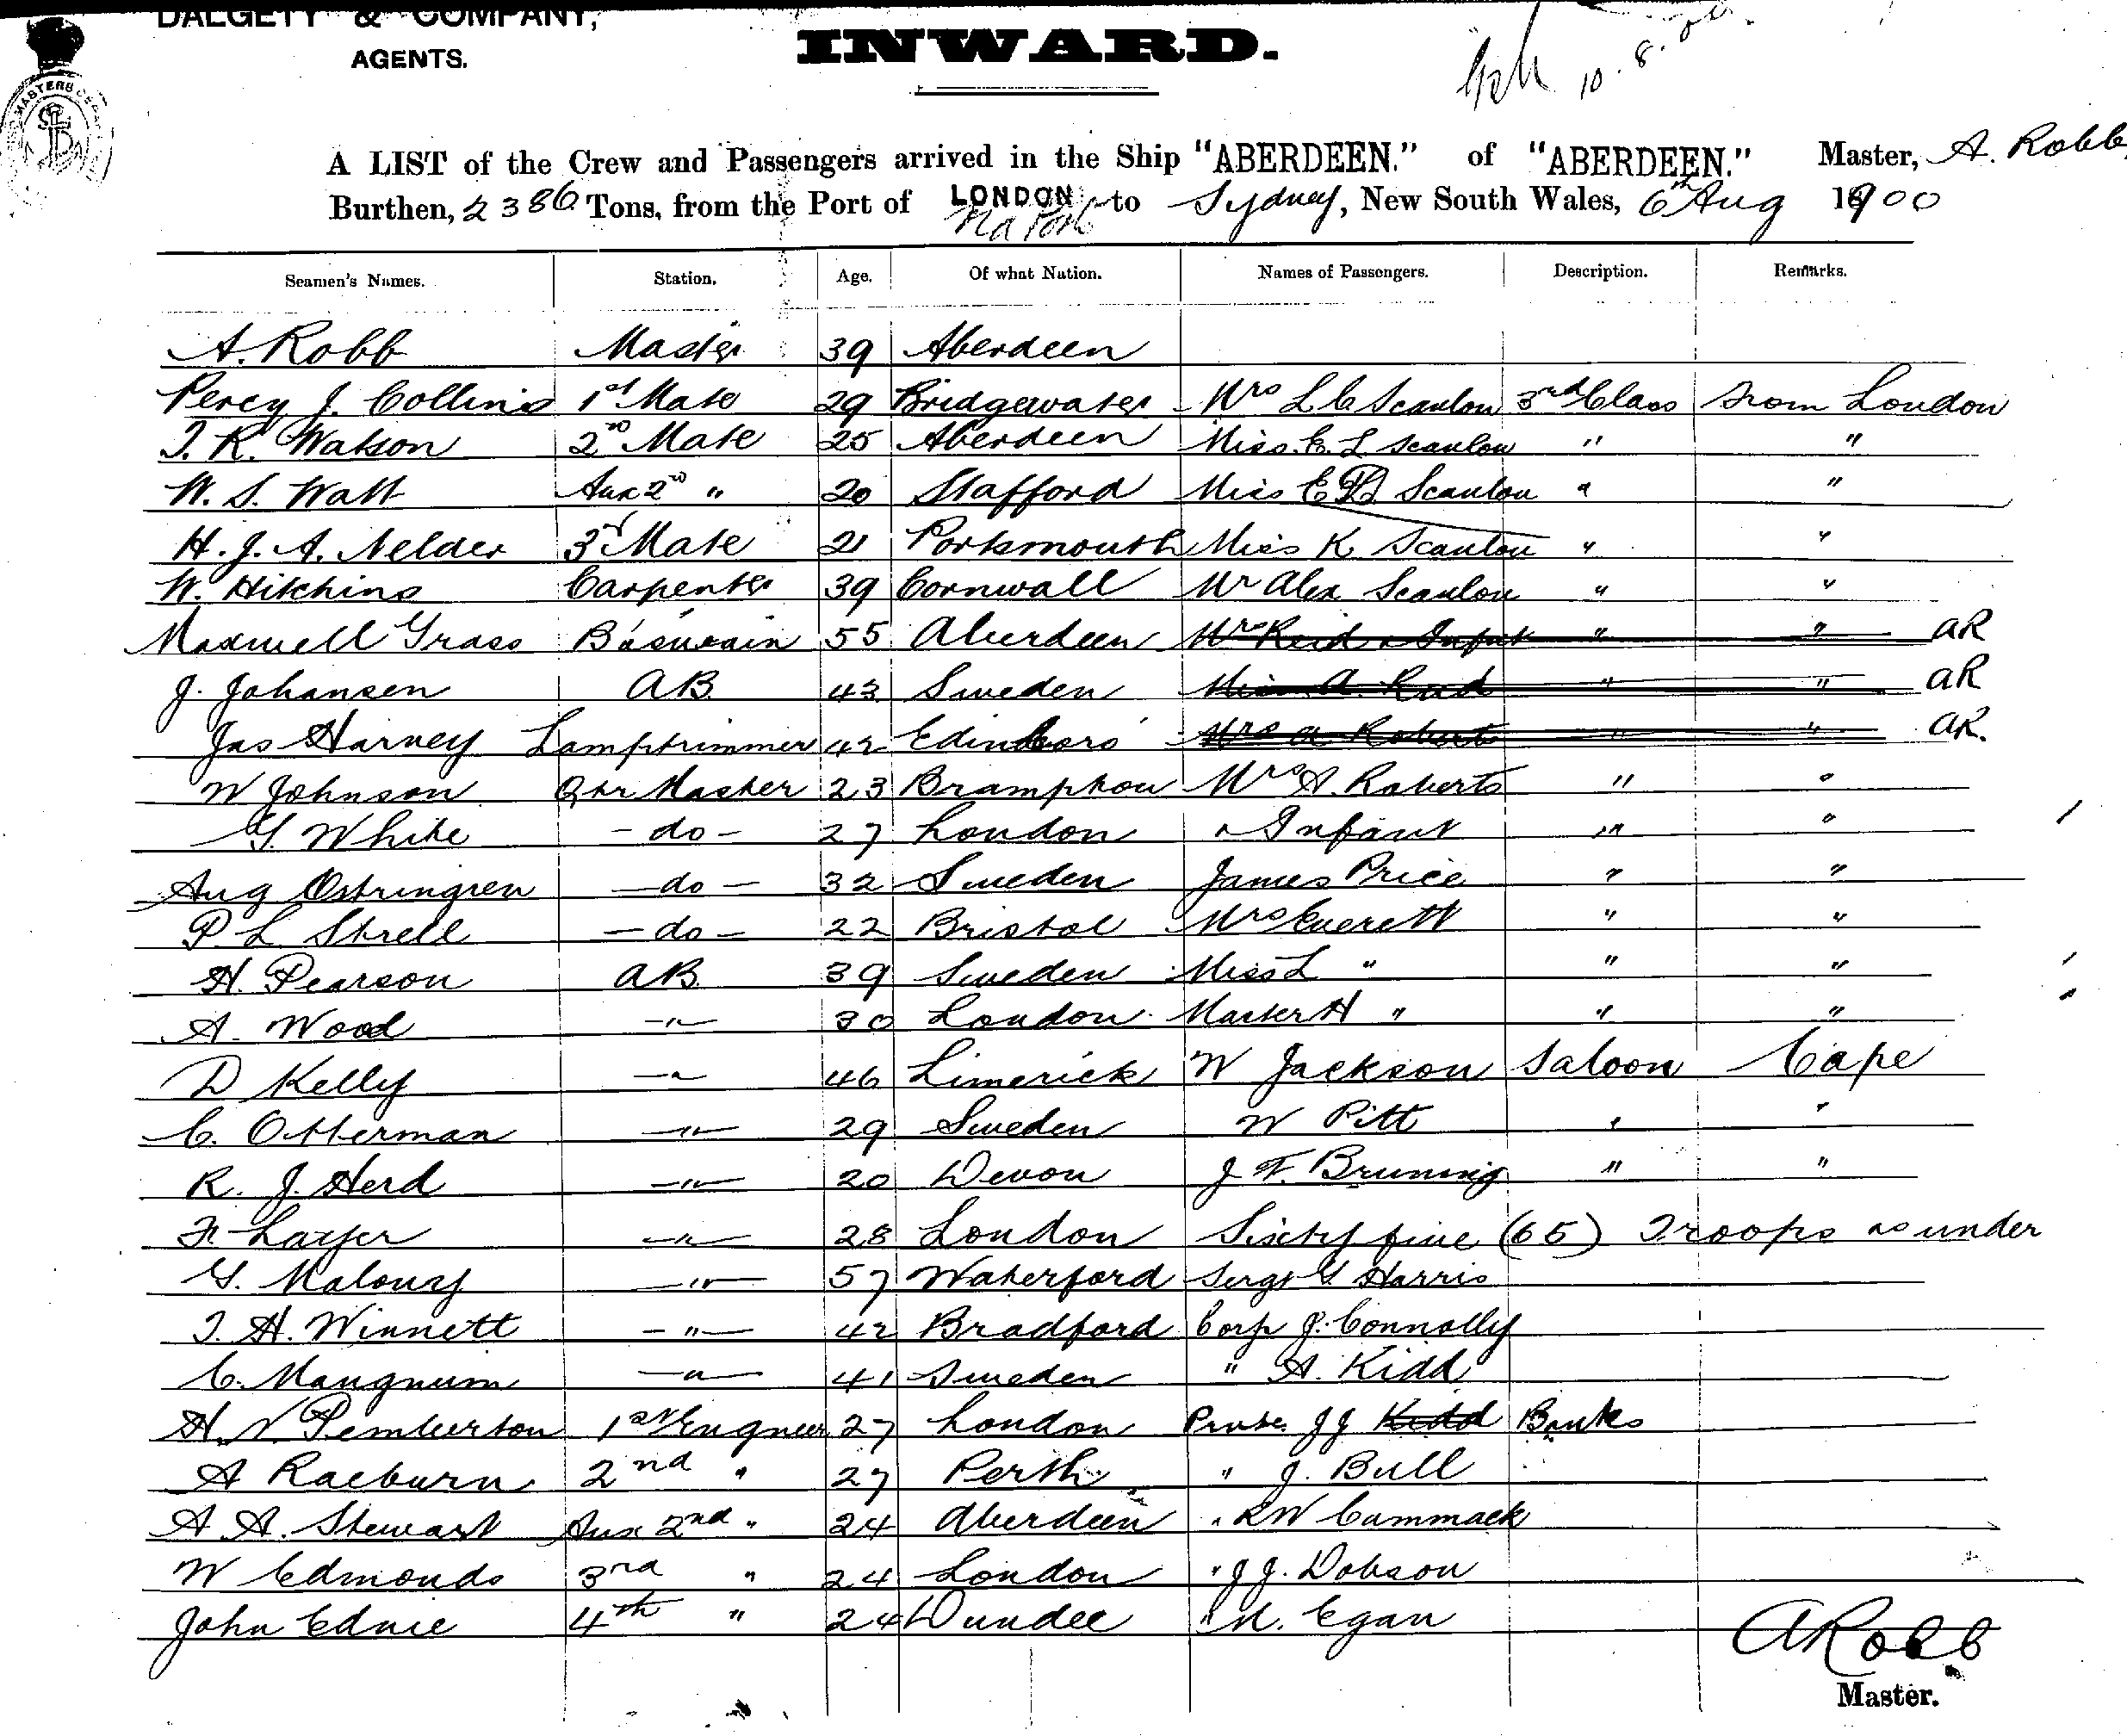 DALGETY & COMPANY,
AGENTS.
INWARD.
10.8.
A LIST of the Crew and Passengers arrived in the Ship "ABERDEEN." of "ABERDEEN." Master, A. Robb
Burthen, 2386 Tons, from the Port of LONDON to Sydney, New South Wales, 6th Aug 1900
Seamen's Names. Station. Age. Of what Nation. Names of Passengers. Description. Remarks.
A. Robb Master 39 Aberdeen
Percy J. Collins 1st Mate 29 Bridgewater Mrs L C Scanlon 3rd Class From London
T. R. Watson 2nd Mate 25 Aberdeen Miss E. L Scanlon " "
W. S. Watt Aux 2nd " 20 Stafford Miss E Scanlon " "
H. J. A. Nelder 3rd Mate 21 Portsmouth Miss K Scanlon " "
W. Hitchins Carpenter 39 Cornwall Mr Alex Scanlon " "
Maxwell Grass Bosuwain 55 Aberdeen Mrs Reid & Infant " " AR
J. Johansen AB. 43 Sweden Miss A. Reid " " AR
Jas Harvey Lamptrimmer 42 Edinboro Mrs A Robert " " AR.
W Johnson Qtr Master 23 Brampton Mrs A. Roberts " "
G. White - do - 27 London & Infant " "
Aug Ostringren - do - 32 Sweden James Price " "
P. L Strell - do - 22 Bristol Mrs Everett " "
H. Pearson AB. 39 Sweden Miss L " " "
A. Wood - " - 30 London Master H " " "
D Kelly - " 46 Limerick W Jackson Saloon Cape
C. Otterman - " - 29 Sweden W Pitt " "
R. J. Herd - " - 20 Devon J F. Bruning " "
F. Layer - " - 28 London Sixty five (65) Troops as under
G. Malony - " - 57 Waterford Sergt G Harris
T. H. Winnett - " - 42 Bradford Corp J. Connolly
C. Mangnum - " - 41 Sweden " A. Kidd
H. V. Pemberton 1st Engneer 27 London Privte. J J Kidd Banks
A Raeburn 2nd " 27 Perth " J. Bull
A A. Stewart Aux 2nd " 24 Aberdeen " R W Cammack
W Edmonds 3rd " 24 London " J J. Dobson
John Ednie 4th " 24 Dundee " M. Egan
A Robb
Master.